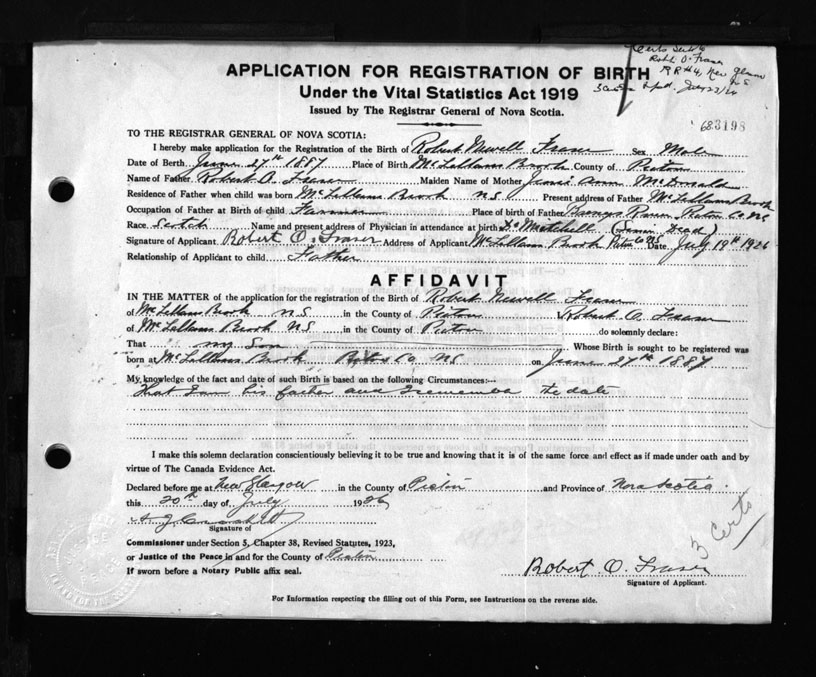 Certs sent to
Robt O. Fraser
RR #4, New Glasgow
N S
July 22/26
APPLICATION FOR REGISTRATION OF BIRTH
Under the Vital Statistics Act 1919
Issued by The Registrar General of Nova Scotia.
683198
TO THE REGISTRAR GENERAL OF NOVA SCOTIA:
I hereby make application for the Registration of the Birth of Robert Newell Fraser Sex Male
Date of Birth June 27th 1887 Place of Birth McLellans Brook County of Pictou
Name of Father Robert O. Fraser Maiden Name of Mother Jennie Ann McDonald
Residence of Father when child was born McLellans Brook N S Present address of Father McLellans Brook
Occupation of Father at Birth of child Farmer Place of birth of Father Barneys River Pictou Co NS
Race Scotch Name and present address of Physician in attendance at birth Mitchell (Dead)
Signature of Applicant Robert O. Fraser Address of Applicant McLellans Brook Pictou Co NS Date July 19th 1926
Relationship of Applicant to child Father
AFFIDAVIT
IN THE MATTER of the application for the registration of the Birth of Robert Newell Fraser
of McLellans Brook N S in the County of Pictou I, Robert O. Fraser
of McLellans Brook N S in the County of Pictou do solemnly declare:
That my Son Whose Birth is sought to be registered was
born at McLellans Brook Pictou Co NS on June 27th 1887
My knowledge of the fact and date of such Birth is based on the following Circumstances:—
That I am his father and I remember the date
I make this solemn declaration conscientiously believing it to be true and knowing that it is of the same force and effect as if made under oath and by
virtue of The Canada Evidence Act.
Declared before me at New Glasgow in the County of Pictou and Province of Nova Scotia.
this 20th day of July 1926
Signature of
Commissioner under Section 5, Chapter 38, Revised Statutes, 1923,
or Justice of the Peace in and for the County of Pictou
If sworn before a Notary Public affix seal.
3 Certs
Robert O. Fraser
Signature of Applicant.
For Information respecting the filling out of this Form, see Instructions on the reverse side.